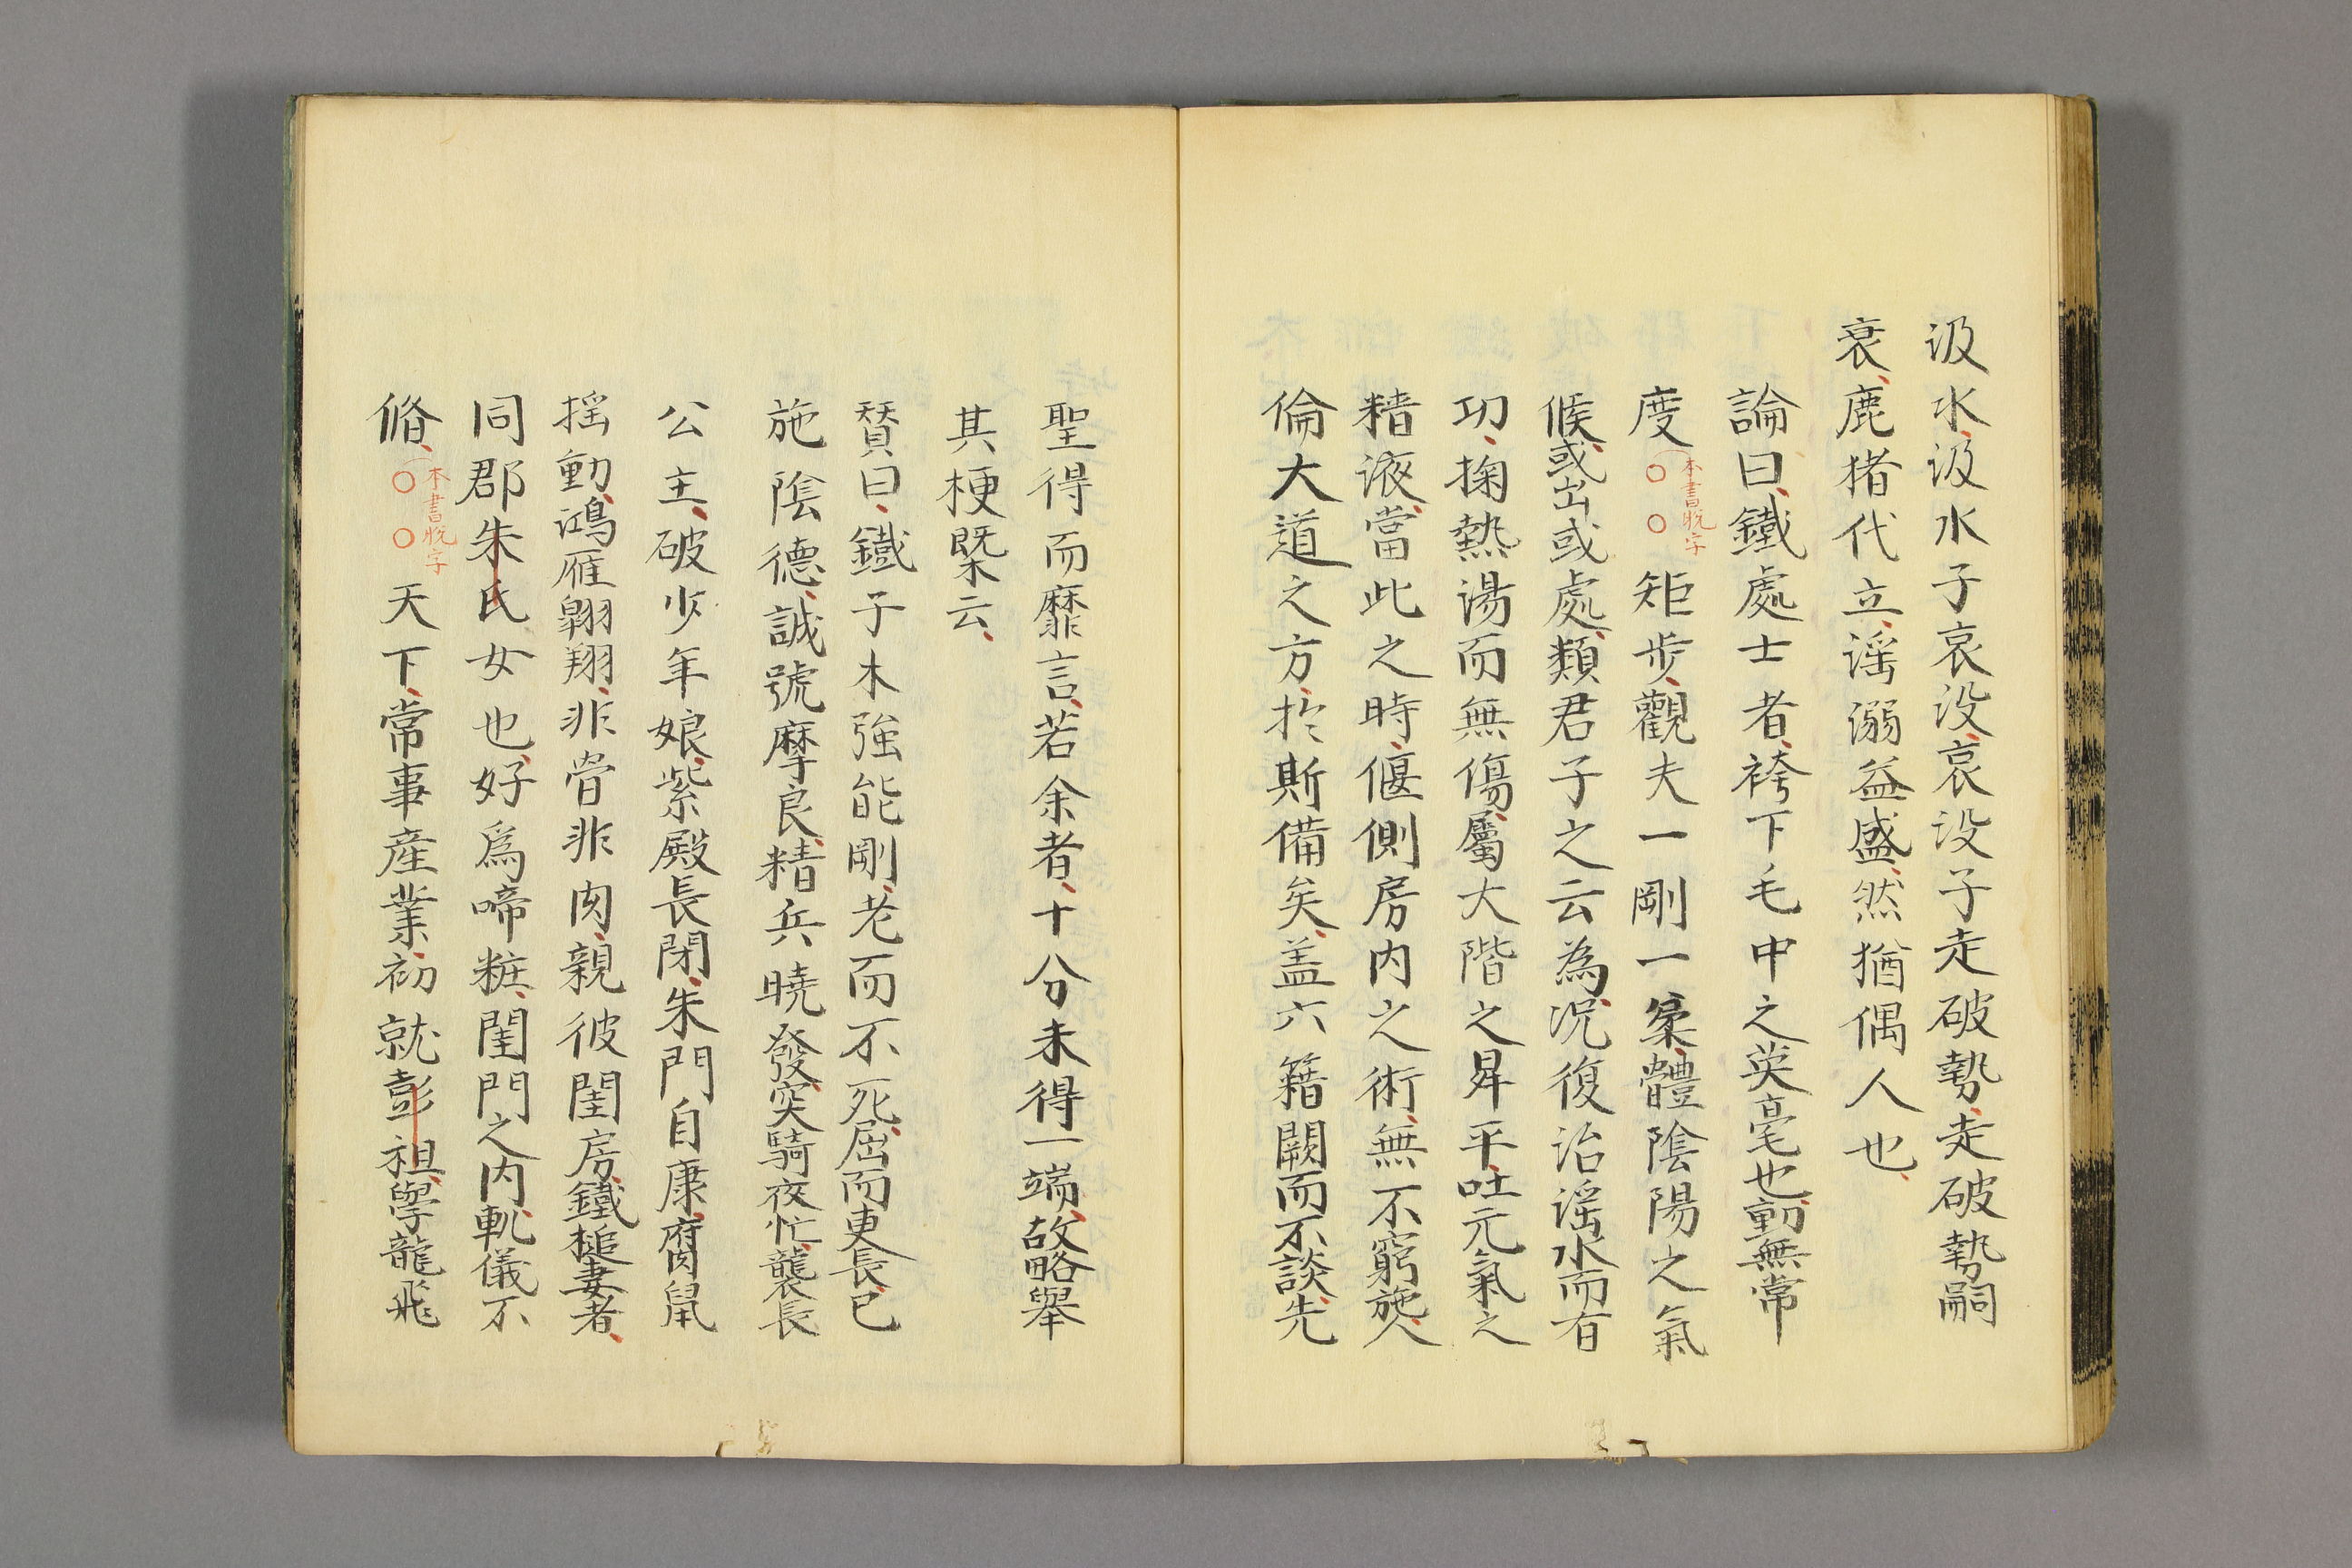 汲水、汲水子哀没、哀没子走破勢、走破勢嗣
衰、鹿猪代立、謡溺益盛、然猶偶人也、
論曰、鐵處士者、袴下毛中之英毫也、動無常
度、〇〇矩步、觀夫一剛一柔、體陰陽之氣
本書脱字
候、或出或處、類君子之云為、況復治謡水而有
功、掬熱湯而無傷、屬大階之昇平、吐元氣之
精液、當此之時、偃側房内之術、無不窮施、人
倫大道之方、於斯備矣、蓋六籍闕而不談、先
聖得而靡言、若余者、十分未得一端、故略舉
其梗槩云、
賛曰、鐵子木強能剛、老而不死、屈而更長、已
施陰德、誠號摩良、精兵曉發、突騎夜忙、襲長
公主、破少年娘、紫殿長閉、朱門自康、腐鼠
搖動、鴻雁翺翔、非骨非肉、親彼閨房、鐵槌妻者、
同郡朱氏女也、好為啼粧、閨門之内、軌儀不
脩、〇〇天下、常事產業、初就彭祖、學龍飛
本書脱字